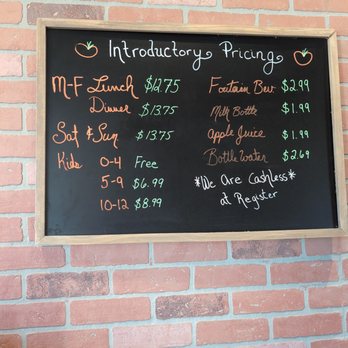 Introductory Pricing
M-F Lunch $12.75
Dinner $13.75
Sat & Sun $13.75
Kids 0-4 Free
5-9 $6.99
10-12 $8.99
Fountain Bev $2.99
Milk Bottle $1.99
Apple Juice $1.99
Bottle water $2.69
*We Are Cashless*
at Register